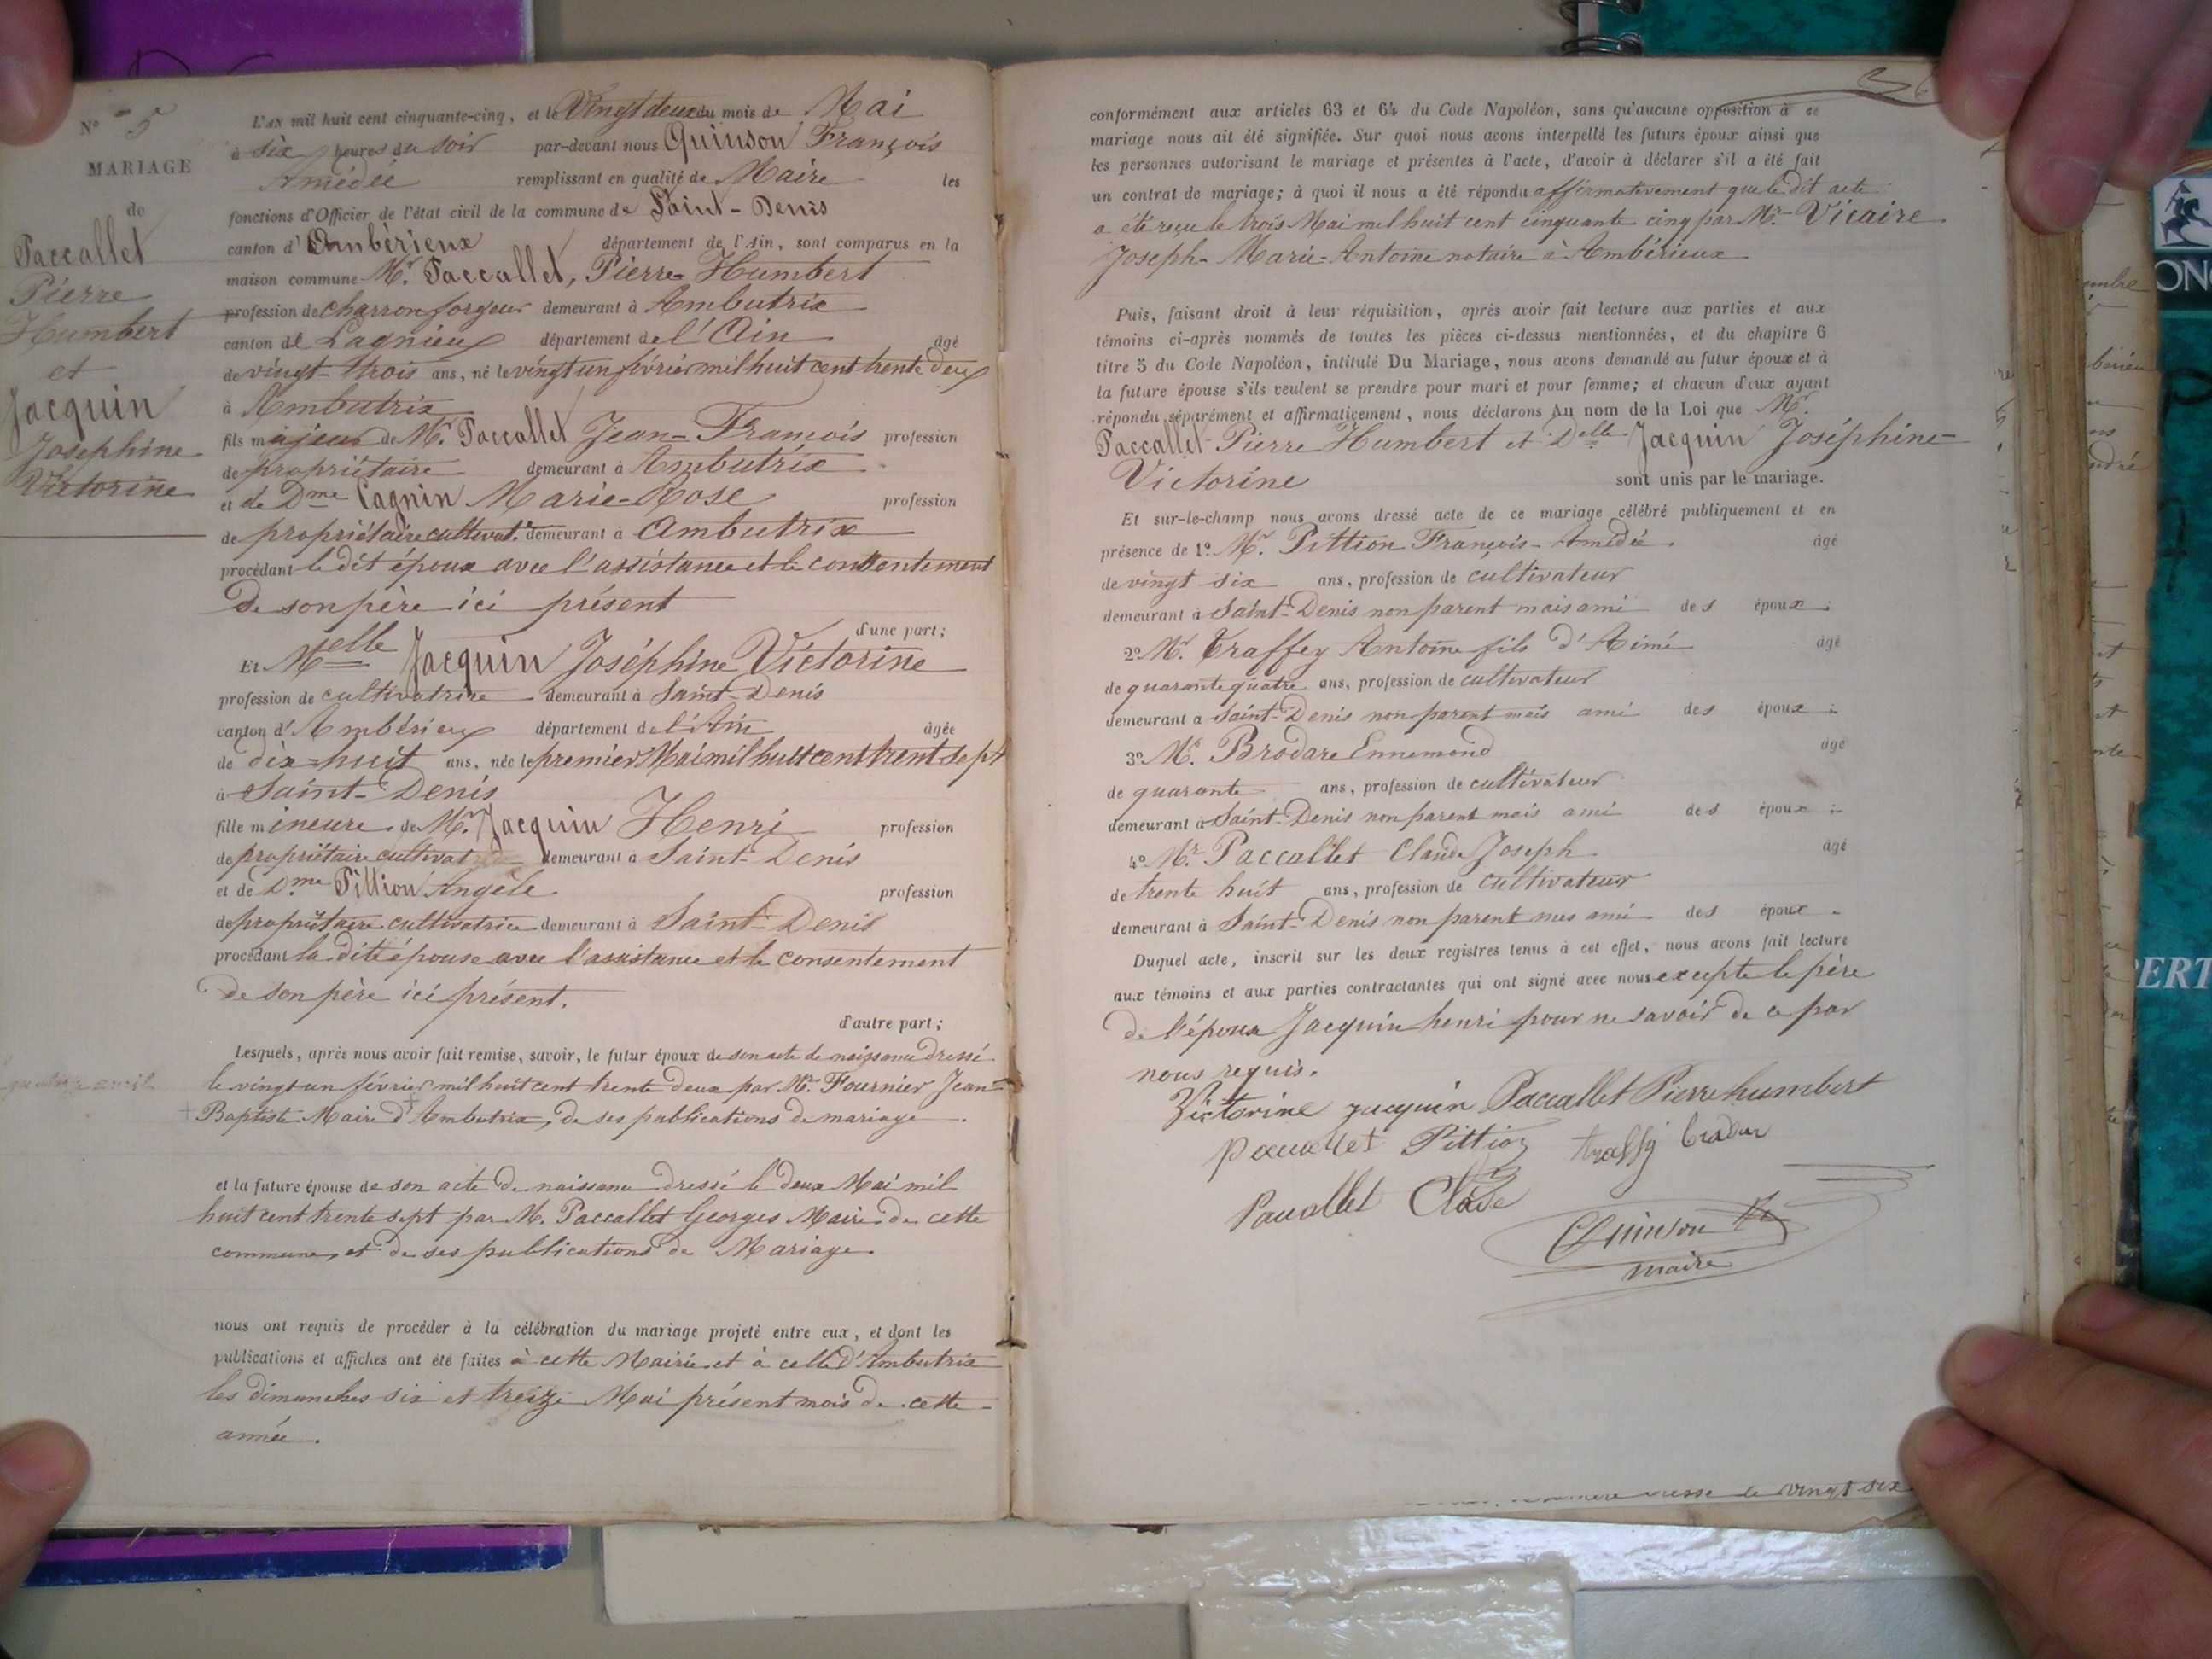 N° 5
MARIAGE
de
Paccallet
Pierre
Humbert
et
Jacquin
Joséphine
Victorine
L'AN mil huit cent cinquante-cinq, et le Vingt deux du mois de Mai
à six heures du soir par-devant nous Quinson François
Amédée remplissant en qualité de Maire les
fonctions d'Officier de l'état civil de la commune de Saint-Denis
canton d'Ambérieux département de l'Ain, sont comparus en la
maison commune Mr. Paccallet, Pierre-Humbert
profession de charron forgeur demeurant à Ambutrix
canton de Lagnieux département de l'Ain âgé
de vingt-trois ans, né le vingt un février mil huit cent trente deux
à Ambutrix
fils majeur de Mr. Paccallet Jean-François profession
de propriétaire demeurant à Ambutrix
et de Dme Cagnin Marie-Rose profession
de propriétaire cultivat. demeurant à Ambutrix
procédant le dit époux avec l'assistance et le consentement
de son père ici présent
d'une part;
Et Melle Jacquin Joséphine Victorine
profession de cultivatrice demeurant à Saint-Denis
canton d'Ambérieux département de l'Ain âgée
de dix-huit ans, née le premier Mai mil huit cent trente sept
à Saint-Denis
fille mineure de Mr. Jacquin Henri profession
de propriétaire cultivat demeurant à Saint-Denis
et de Dme Pittion Angèle profession
de propriétaire cultivatrice demeurant à Saint-Denis
procédant la dite épouse avec l'assistance et le consentement
de son père ici présent.
d'autre part;
Lesquels, après nous avoir fait remise, savoir, le futur époux de son acte de naissance dressé
le vingt un février mil huit cent trente deux par Mr. Fournier Jean-
Baptiste Maire d'Ambutrix, de ses publications de mariage.
et la future épouse de son acte de naissance dressé le deux Mai mil
huit cent trente sept par M. Paccallet Georges Maire de cette
commune, et de ses publications de Mariage.
nous ont requis de procéder à la célébration du mariage projeté entre eux, et dont les
publications et affiches ont été faites à cette Mairie et à celle d'Ambutrix
les dimanches six et treize Mai présent mois de cette
année.
conformément aux articles 63 et 64 du Code Napoléon, sans qu'aucune opposition à ce
mariage nous ait été signifiée. Sur quoi nous avons interpellé les futurs époux ainsi que
les personnes autorisant le mariage et présentes à l'acte, d'avoir à déclarer s'il a été fait
un contrat de mariage; à quoi il nous a été répondu affirmativement que le dit acte
a été reçu le trois Mai mil huit cent cinquante cinq par Mr. Vicaire
Joseph-Marie-Antoine notaire à Ambérieux
Puis, faisant droit à leur réquisition, après avoir fait lecture aux parties et aux
témoins ci-après nommés de toutes les pièces ci-dessus mentionnées, et du chapitre 6
titre 5 du Code Napoléon, intitulé Du Mariage, nous avons demandé au futur époux et à
la future épouse s'ils veulent se prendre pour mari et pour femme; et chacun d'eux ayant
répondu séparément et affirmativement, nous déclarons Au nom de la Loi que Mr.
Paccallet Pierre Humbert et Delle Jacquin Joséphine-
Victorine sont unis par le mariage.
Et sur-le-champ nous avons dressé acte de ce mariage célébré publiquement et en
présence de 1° Mr. Pittion François-Amédée âgé
de vingt six ans, profession de cultivateur
demeurant à Saint-Denis non parent mais ami des époux;
2° Mr. Traffey Antoine fils d'Aimé âgé
de quarante quatre ans, profession de cultivateur
demeurant à Saint-Denis non parent mais ami des époux;
3° Mr. Brodare Ennemond âgé
de quarante ans, profession de cultivateur
demeurant à Saint-Denis non parent mais ami des époux;
4° Mr. Paccallet Claude Joseph âgé
de trente huit ans, profession de cultivateur
demeurant à Saint-Denis non parent mes ami des époux.
Duquel acte, inscrit sur les deux registres tenus à cet effet, nous avons fait lecture
aux témoins et aux parties contractantes qui ont signé avec nous excepte le père
de l'époux Jacquin henri pour ne savoir de ce par
nous requis.
Victorine jacquin Paccallet Pierre humbert
Pittion
Quinson
maire
vingt six
ERT